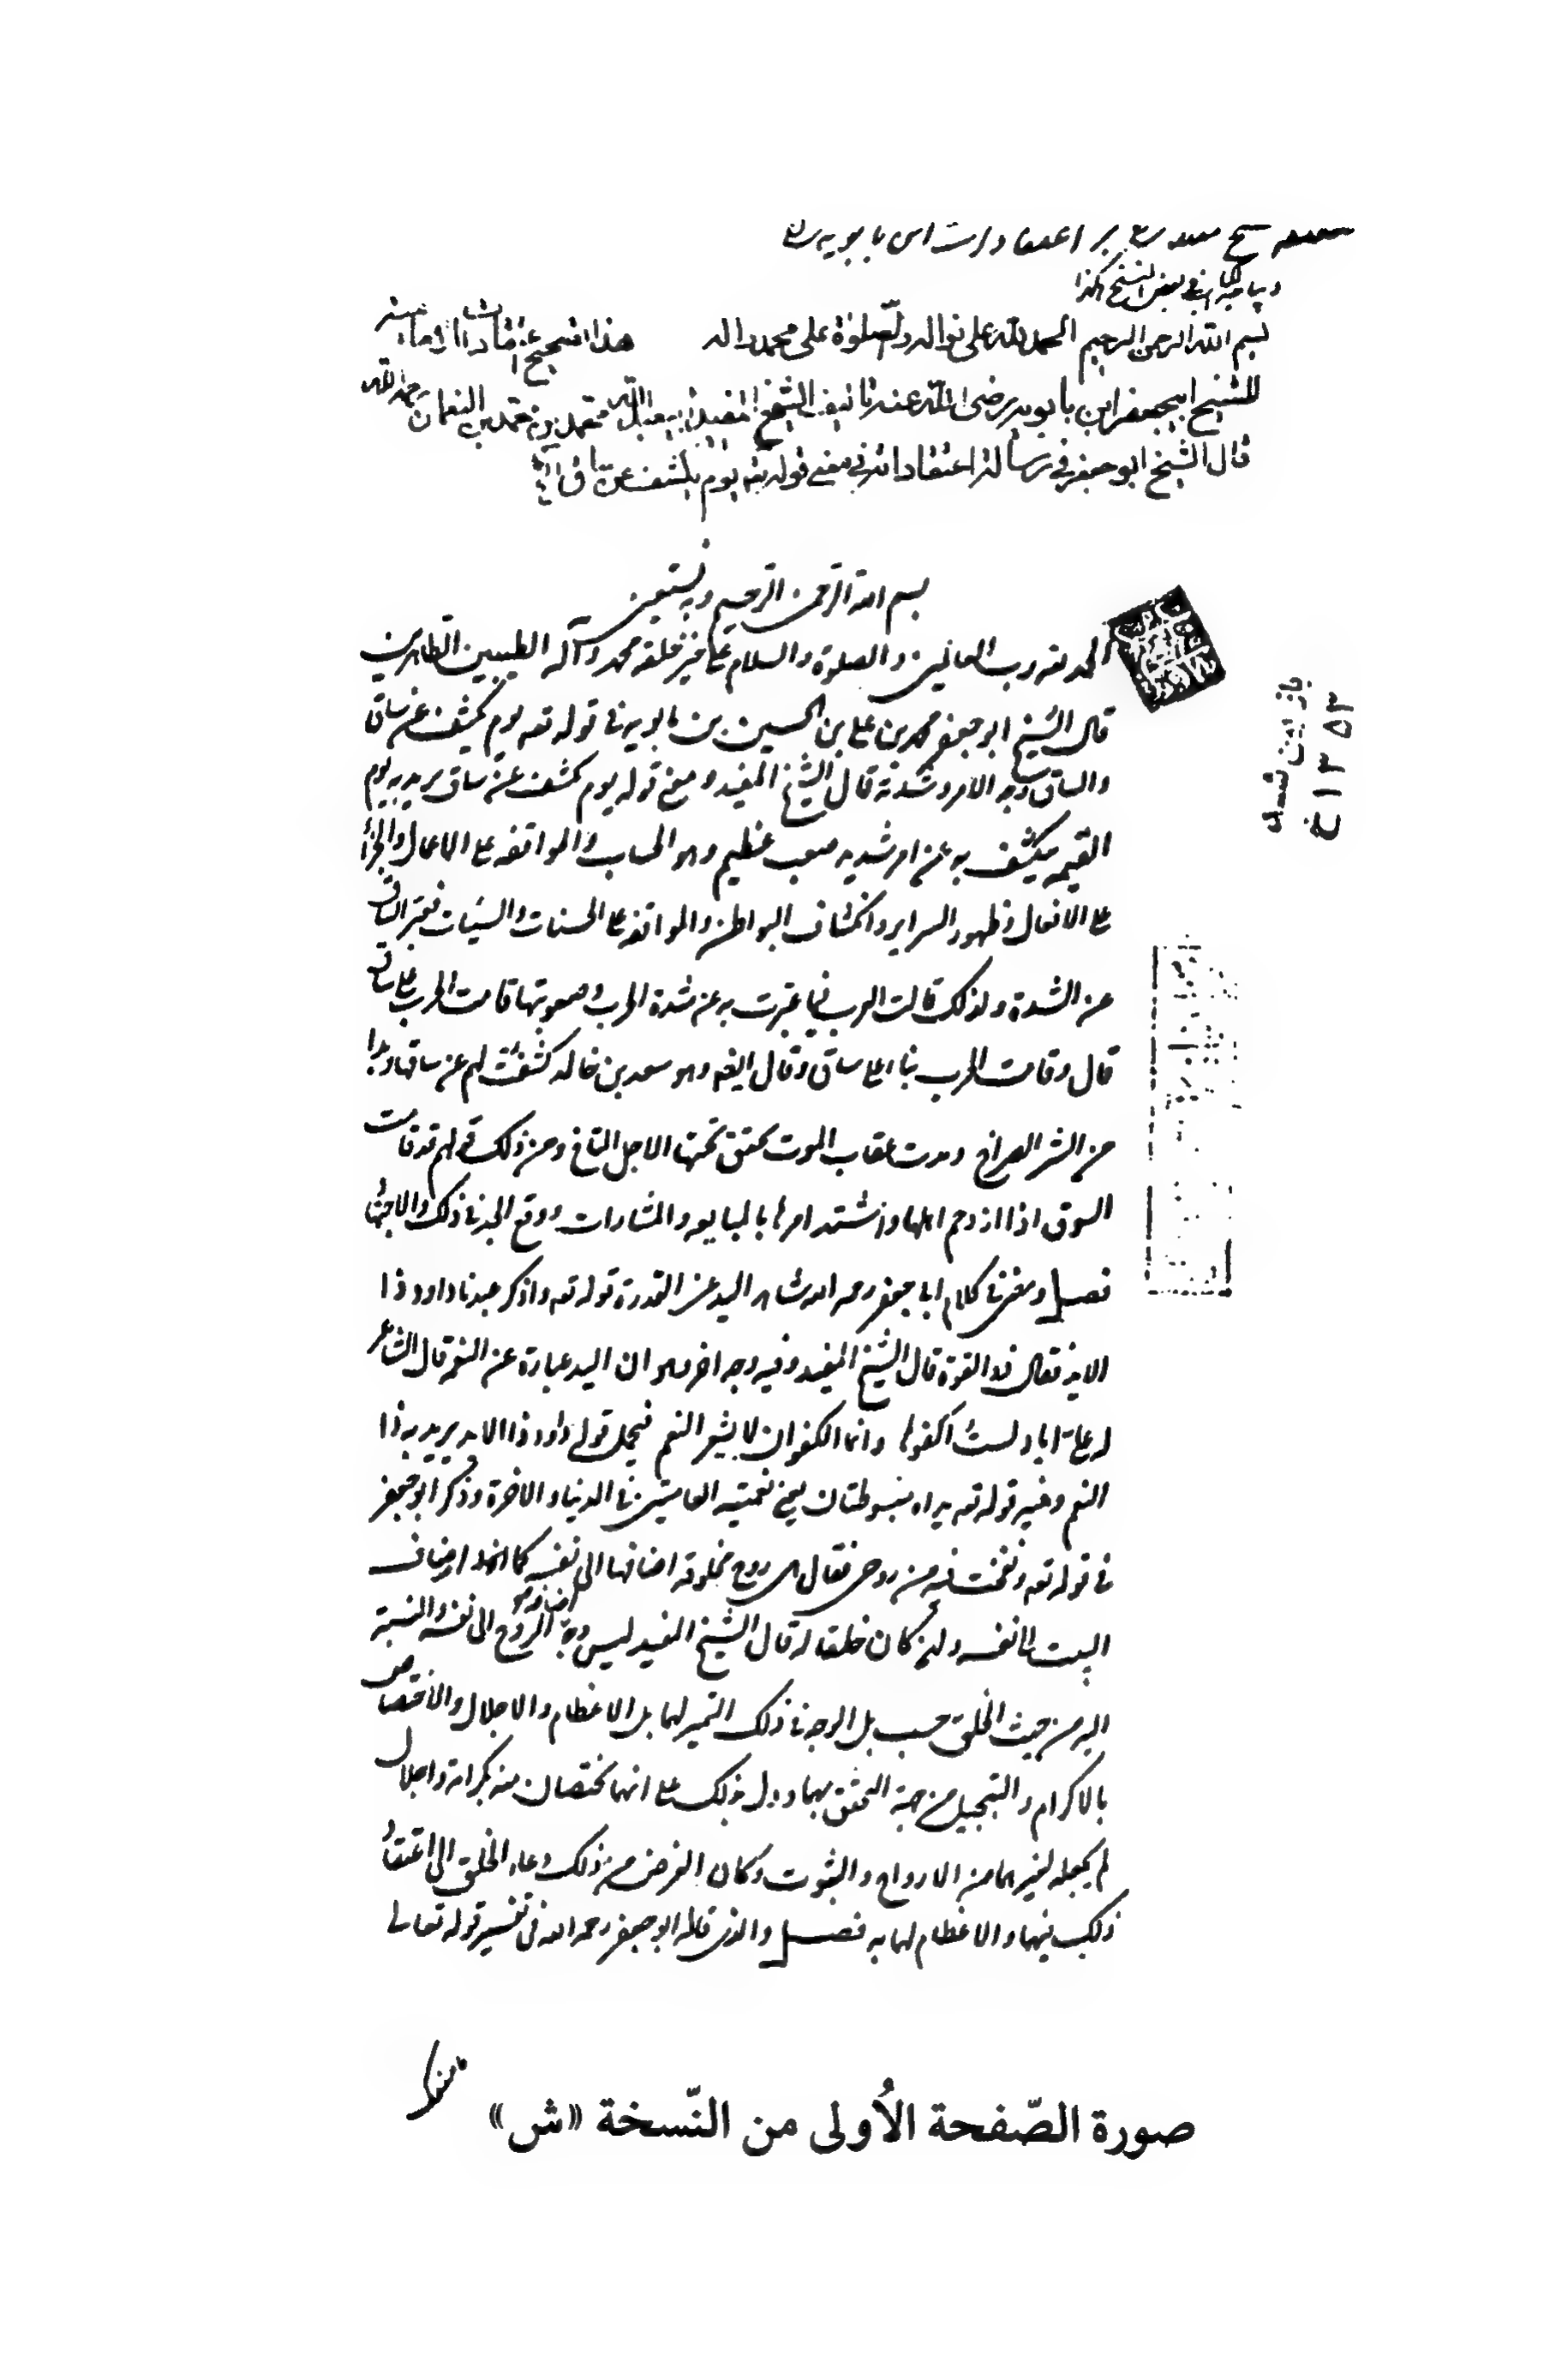 شیخ بر اعتقادات ابن بابویه
دیباجه الکتاب فی بعض النسخ هکذا
بسم الله الرحمن الرحيم الحمد لله على نواله والصلوة على محمد واله هذا تصحيح اعتقادات الامامية
للشيخ ابيجعفر ابن بابويه رضى الله عنه تاليف الشيخ المفيد ابيعبد الله محمد بن محمد بن النعمان رحمه الله
قال الشيخ ابو جعفر في رسالة اعتقاداته في معنى قوله تع يوم يكشف عن ساق
بسم الله الرحمن الرحيم وبه نستعين
الحمد لله رب العالمين والصلوة والسلام على خير خلقه محمد وآله الطيبين الطاهرين
قال الشيخ ابو جعفر محمد بن علي بن الحسين بن بابويه في قوله تعه يوم يكشف عن ساق
والساق وجه الامر وشدته قال الشيخ المفيد ومعنى قوله يوم يكشف عن ساق يريد به يوم
القيمه يكشف به عن امر شديد صعب عظيم وهو الحساب والمواقفه على الاعمال والجزا
على الافعال وظهور السراير وانكشاف البواطن والمواقفه على الحسنات والسيئات فعبر بالساق
عن الشدة ولذلك قالت العرب فيما عبرت به عن شدة الحرب وصعوبتها قامت الحرب على ساق
قال وقامت الحرب بنا على ساق وقال ايضه وهو سعد بن خالد كشفت لهم عن ساقها وبدا
من الشر الصراح وبدت عقاب الموت يخفق تحتها الاجل المتاح ومن ذلك قولهم قد قامت
السوق اذا ازدحم اهلها واشتد امرها بالمبايعه والمشارات ووقع الجد في ذلك والاجتهاد
فصل ومضى في كلام ابا جعفر رحمه الله شاهد اليد عن القدرة قوله تعه واذكر عبدنا داود ذا
الايد فقال ذو القوة قال الشيخ المفيد وفيه وجه اخر وهو ان اليد عبارة عن النعم قال الشاعر
له علي ايادلست اكفرها وانما الكفر ان لا يشكر النعم فيحتمل قوله داود ذا الايد يريد به ذا
النعم ومنه قوله تعه يداه مبسوطتان يعنى نعمتيه العامتين في الدنيا والاخرة وذكر ابو جعفر
في قوله تعه ونفخت فيه من روحى فقال هى روح مخلوقة اضافها الى نفسه كما اضاف
البيت الى نفسه وان كان خلقا له قال الشيخ المفيد ليس وجه اضافة الروح الى نفسه والنسبة
اليه من حيث الخلق حسب بل الوجه في ذلك التميز لهما بالاعظام والاجلال والاختصاص
بالاكرام والتبجيل من جهة التحقق بهما ودل بذلك على انهما يختصان منه بكرامة واجلال
لم يجعله لغيرهما من الارواح والبيوت وكان الغرض من ذلك دعاء الخلق الى اعتقاد
ذلك فيهما والاعظام لهما به فصل والذى قاله ابو جعفر رحمه الله فى تفسير قوله تعالى
بازبین شده
۱۳۵۳
صورة الصّفحة الأُولى من النّسخة «ش»